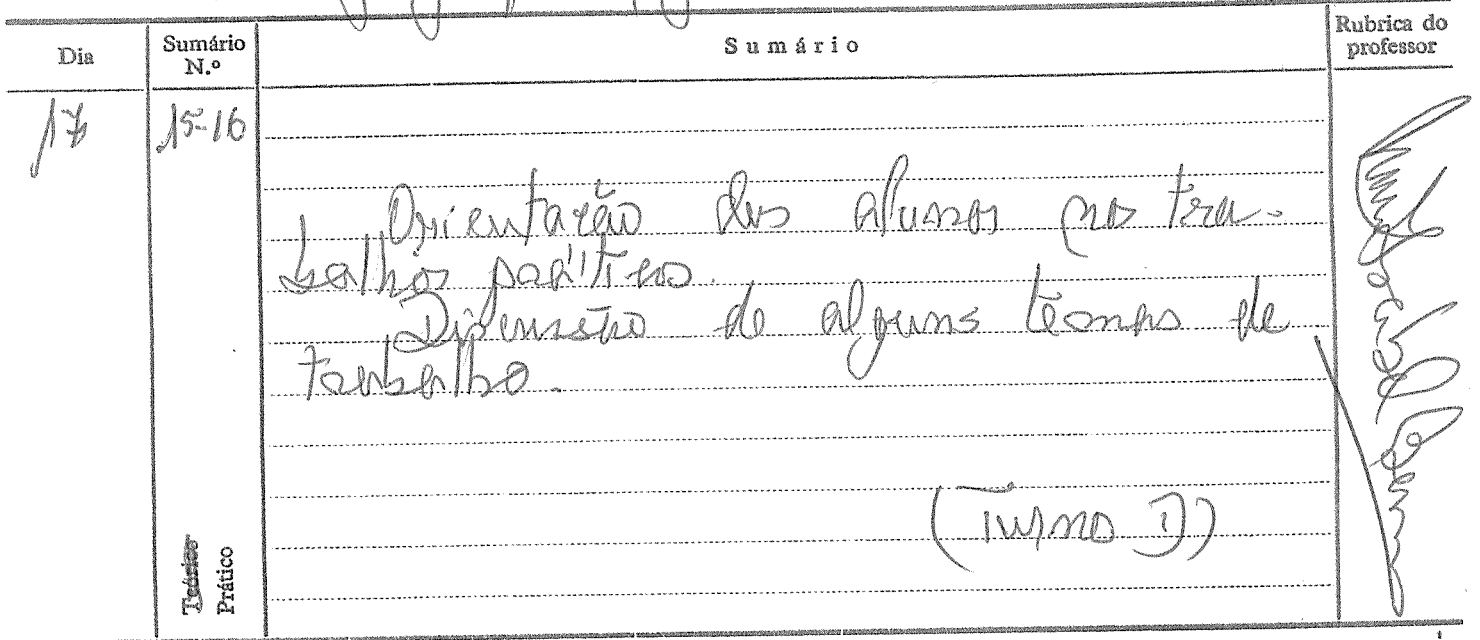 Dia
Sumário
N.º
Sumário
Rubrica do
professor
17
15-16
Orientação dos alunos nos tra-
balhos práticos.
Discussão de alguns temas de
trabalho.
(Turno I)
Teórico
Prático